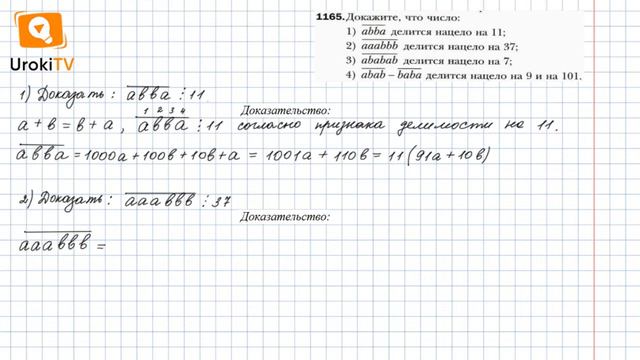 UrokiTV
1165. Докажите, что число:
1) abba делится нацело на 11;
2) aaabbb делится нацело на 37;
3) ababab делится нацело на 7;
4) abab – baba делится нацело на 9 и на 101.
1) Доказать: авва ⋮ 11
Доказательство:
1 2 3 4
а + в = в + а, авва ⋮ 11 согласно признака делимости на 11.
авва = 1000а + 100в + 10в + а = 1001а + 110в = 11 (91а + 10в)
2) Доказать: аааввв ⋮ 37
Доказательство:
аааввв =